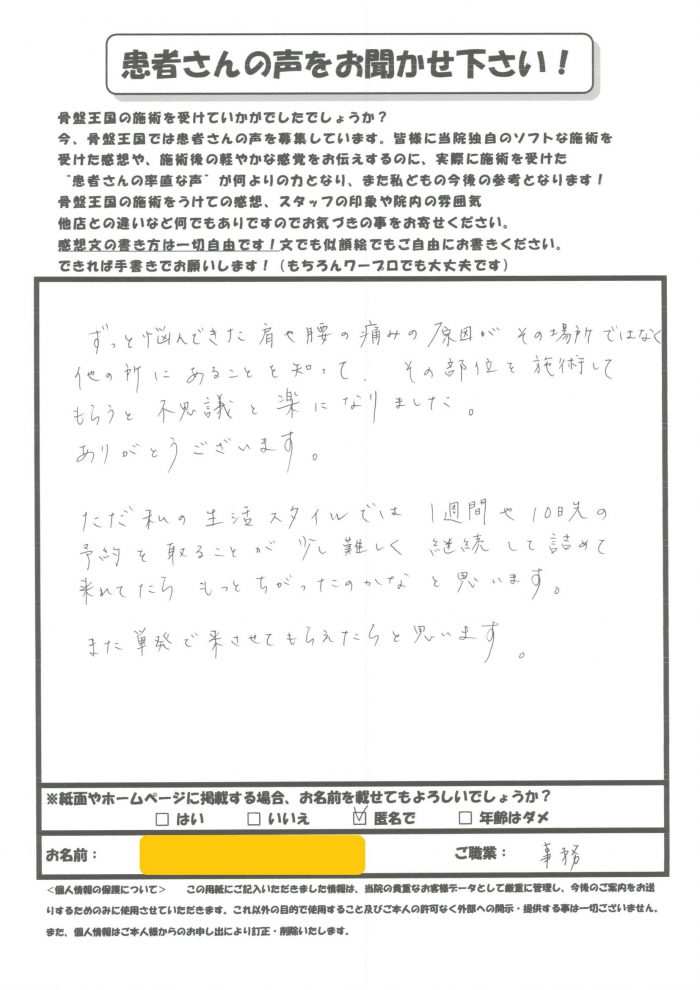 患者さんの声をお聞かせ下さい！
骨盤王国の施術を受けていかがでしたでしょうか？
今、骨盤王国では患者さんの声を募集しています。皆様に当院独自のソフトな施術を
受けた感想や、施術後の軽やかな感覚をお伝えするのに、実際に施術を受けた
"患者さんの率直な声"が何よりの力となり、また私どもの今後の参考となります！
骨盤王国の施術をうけての感想、スタッフの印象や院内の雰囲気
他店との違いなど何でもありですのでお気づきの事をお寄せください。
感想文の書き方は一切自由です！文でも似顔絵でもご自由にお書きください。
できれば手書きでお願いします！（もちろんワープロでも大丈夫です）
ずっと悩んできた肩や腰の痛みの原因がその場所ではなく
他の所にあることを知って、その部位を施術して
もらうと不思議と楽になりました。
ありがとうございます。
ただ私の生活スタイルでは1週間や10日先の
予約を取ることが少し難しく継続して詰めて
来れてたらもっとちがったのかなと思います。
また単発で来させてもらえたらと思います。
※紙面やホームページに掲載する場合、お名前を載せてもよろしいでしょうか？
□ はい □ いいえ ☑ 匿名で □ 年齢はダメ
お名前： ご職業： 事務
＜個人情報の保護について＞ この用紙にご記入いただきました情報は、当院の貴重なお客様データとして厳重に管理し、今後のご案内をお送
りするためのみに使用させていただきます。これ以外の目的で使用すること及びご本人の許可なく外部への開示・提供する事は一切ございません。
また、個人情報はご本人様からのお申し出により訂正・削除いたします。